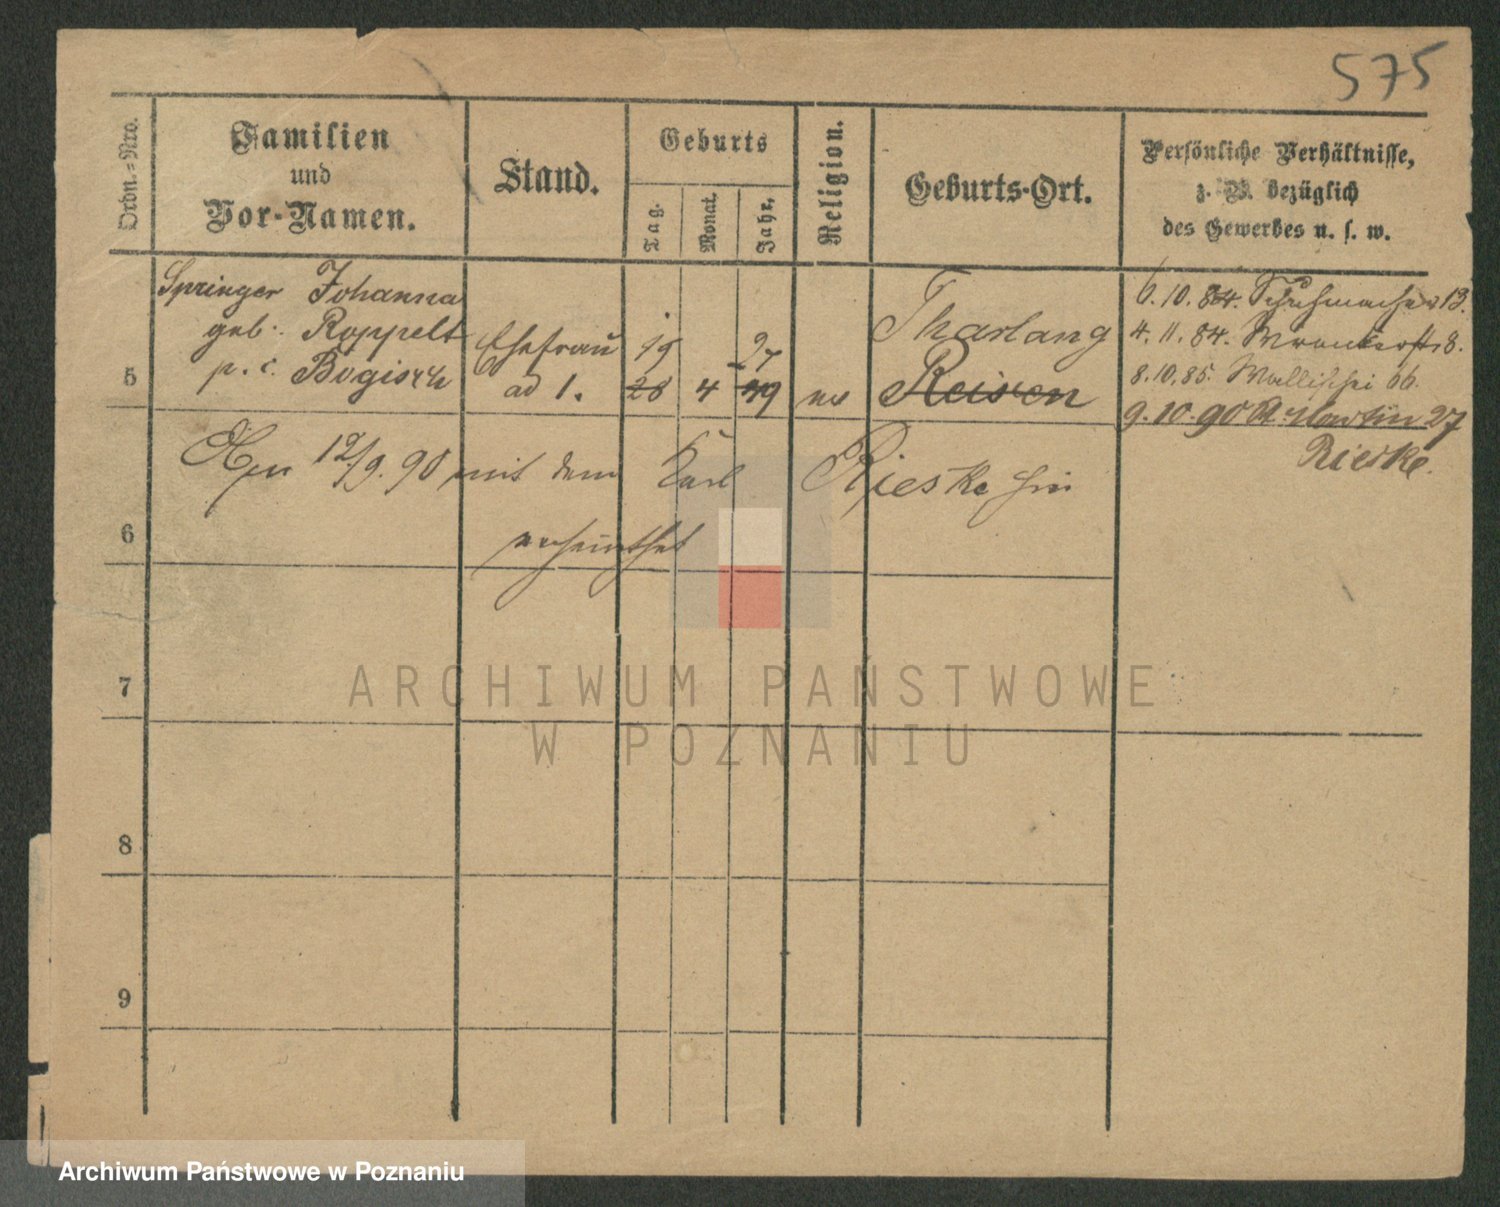 575
Ordn.=Nro.
Familien
und
Vor-Namen.
Stand.
Geburts
Tag.
Monat.
Jahr.
Religion.
Geburts-Ort.
Persönliche Verhältnisse,
z. B. bezüglich
des Gewerbes u. s. w.
Springer Johanna
geb. Roppelt
Bogisch
5
Ehefrau
ad 1.
19
28
4
27
49
ev
Tharlang
Reisen
6.10.84. Schuhmacher 13.
4.11.84. Wronkerstr 8.
8.10.85. Wallischei 66.
9.10.90 St. Martin 27
Rieske.
12/9.90 mit dem Karl Rieske hier
6
verheirathet
7
ARCHIWUM PAŃSTWOWE
W POZNANIU
8
9
Archiwum Państwowe w Poznaniu